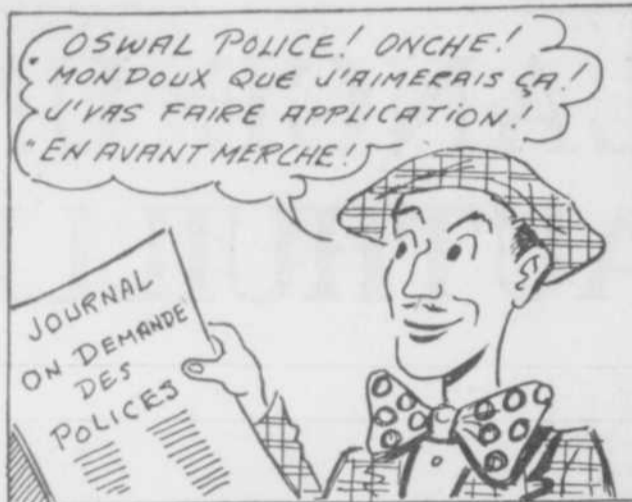 OSWAL POLICE! ONCHE!
MON DOUX QUE J'AIMERAIS ÇA!
J'VAS FAIRE APPLICATION!
"EN AVANT MERCHE!
JOURNAL
ON DEMANDE
DES
POLICES